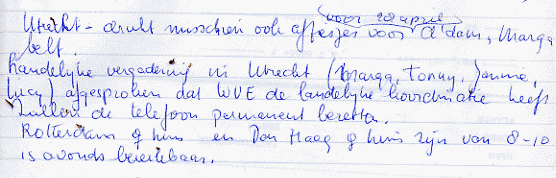 voor 20 april
Utrecht - drukt misschien ook affiesjes voor A'dam, Marga
belt.
Landelijke vergadering in Utrecht (Marga, Tonny, Janine,
Lucy) afgesproken dat WVE de landelijke koördinatie heeft
Zullen de telefoon permanent bezetten.
Rotterdam q huis en Den Haag q huis zijn van 8-10
is avonds bereikbaar.